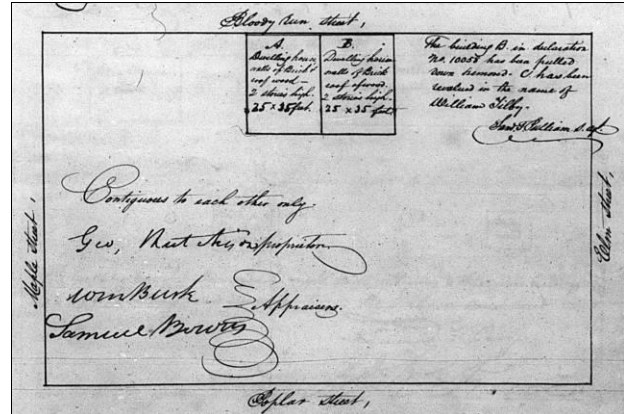 Bloody Run Street,
A.
Dwelling house,
walls of Brick &
roof wood —
2 stories high.
25 x 35 feet.
B.
Dwelling house
walls of Brick
roof of wood.
2 stories high.
25 x 35 feet
The building B. in declaration
No. 10058 has been pulled
down & removed. C has been
revalued in the name of
William Tilby.
Gilliam S. af.
Maple Street,
Elm Street,
Contiguous to each other only.
Geo, proprietor
Wm Burk
Appraisers.
Samuel
Poplar Street,